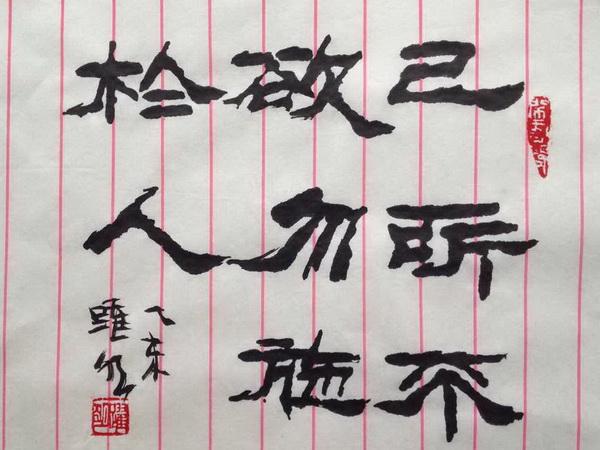 己所不
欲勿施
於人
乙未